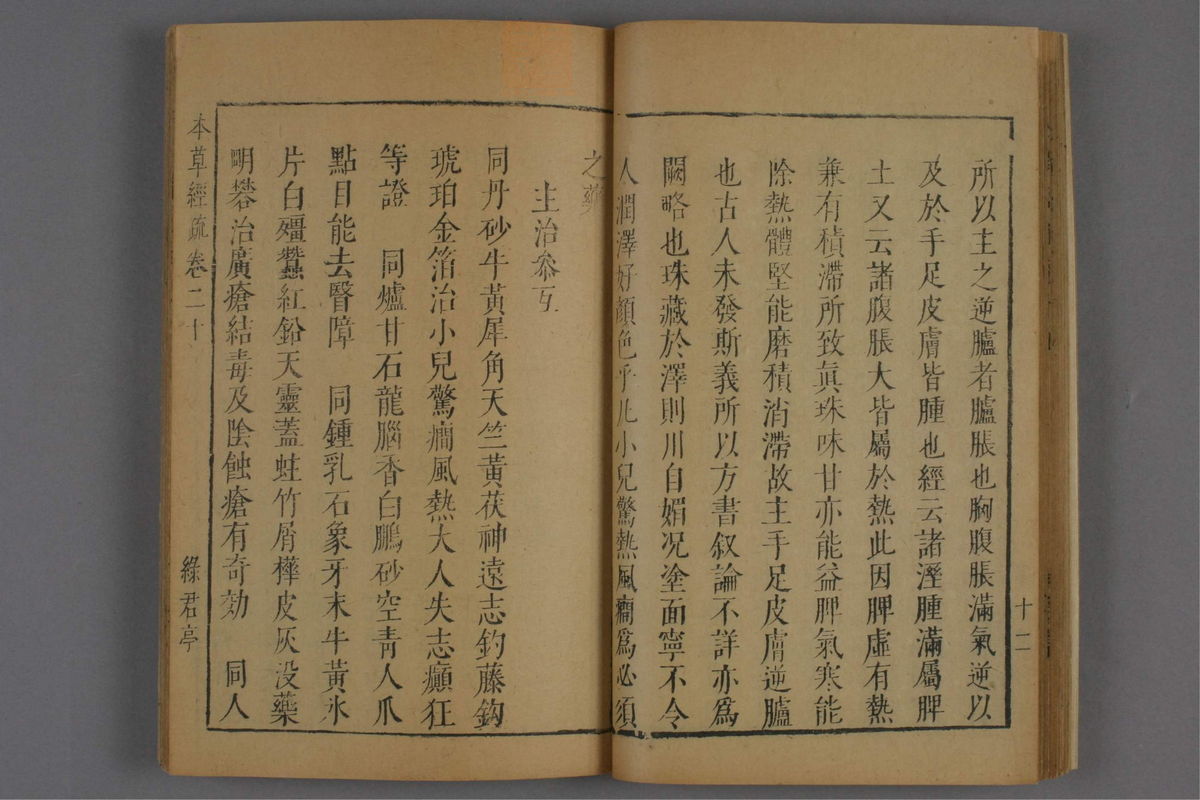 所以主之逆臚者臚脹也胸腹脹滿氣逆以
及於手足皮膚皆腫也經云諸溼腫滿屬脾
土又云諸腹脹大皆屬於熱此因脾虛有熱
兼有積滯所致眞珠味甘亦能益脾氣寒能
除熱體堅能磨積消滯故主手足皮膚逆臚
也古人未發斯義所以方書叙論不詳亦爲
闕略也珠藏於澤則川自媚况塗面寧不令
人潤澤好顏色乎凡小兒驚熱風癎爲必須
之藥
主治叅互
同丹砂牛黃犀角天竺黃茯神遠志釣藤鈎
琥珀金箔治小兒驚癎風熱大人失志癲狂
等證　同爐甘石龍腦香白鵬砂空青人爪
點目能去瞖障　同鍾乳石象牙末牛黃氷
片白殭蠶紅鉛天靈蓋蛀竹屑樺皮灰没藥
明礬治廣瘡結毒及陰蝕瘡有奇効　同人
本草經疏卷二十
綠君亭
十二